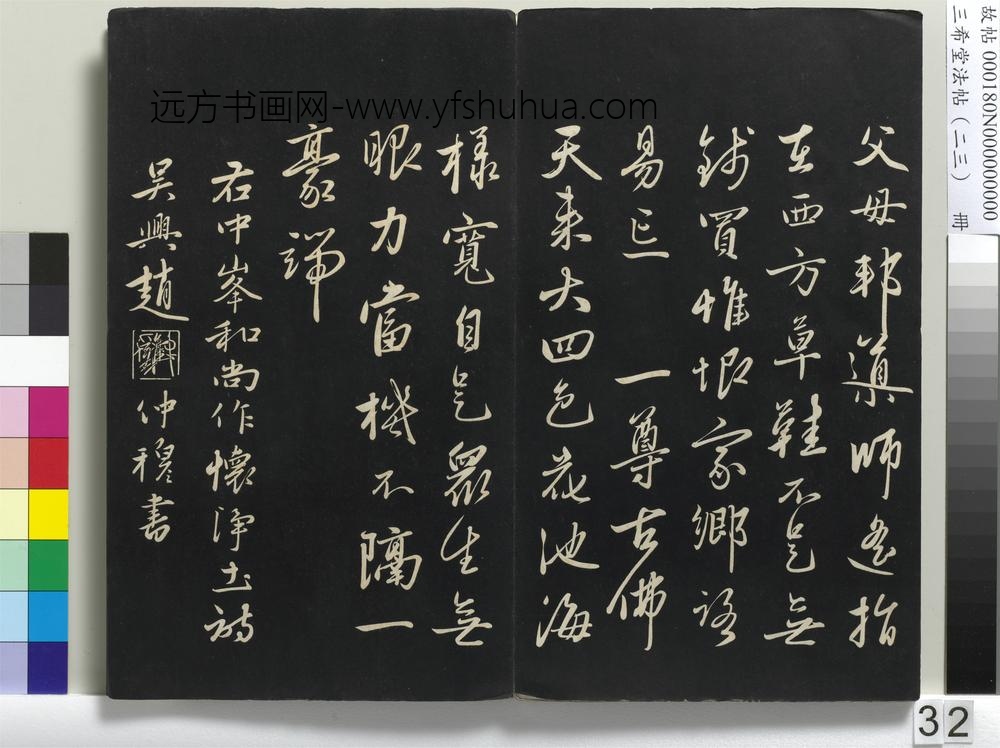 父母邦道師遙指
在西方草鞋不是無
錢買惟恨家鄉路
易忘 一尊古佛
天來大四色花池海
樣寬自是眾生無
眼力當機不隔一
豪端
右中峯和尚作懷淨土詩
吳興趙
仲穆書
远方书画网-www.yfshuhua.com
故帖 000180N000000000
三希堂法帖(二三) 冊
32